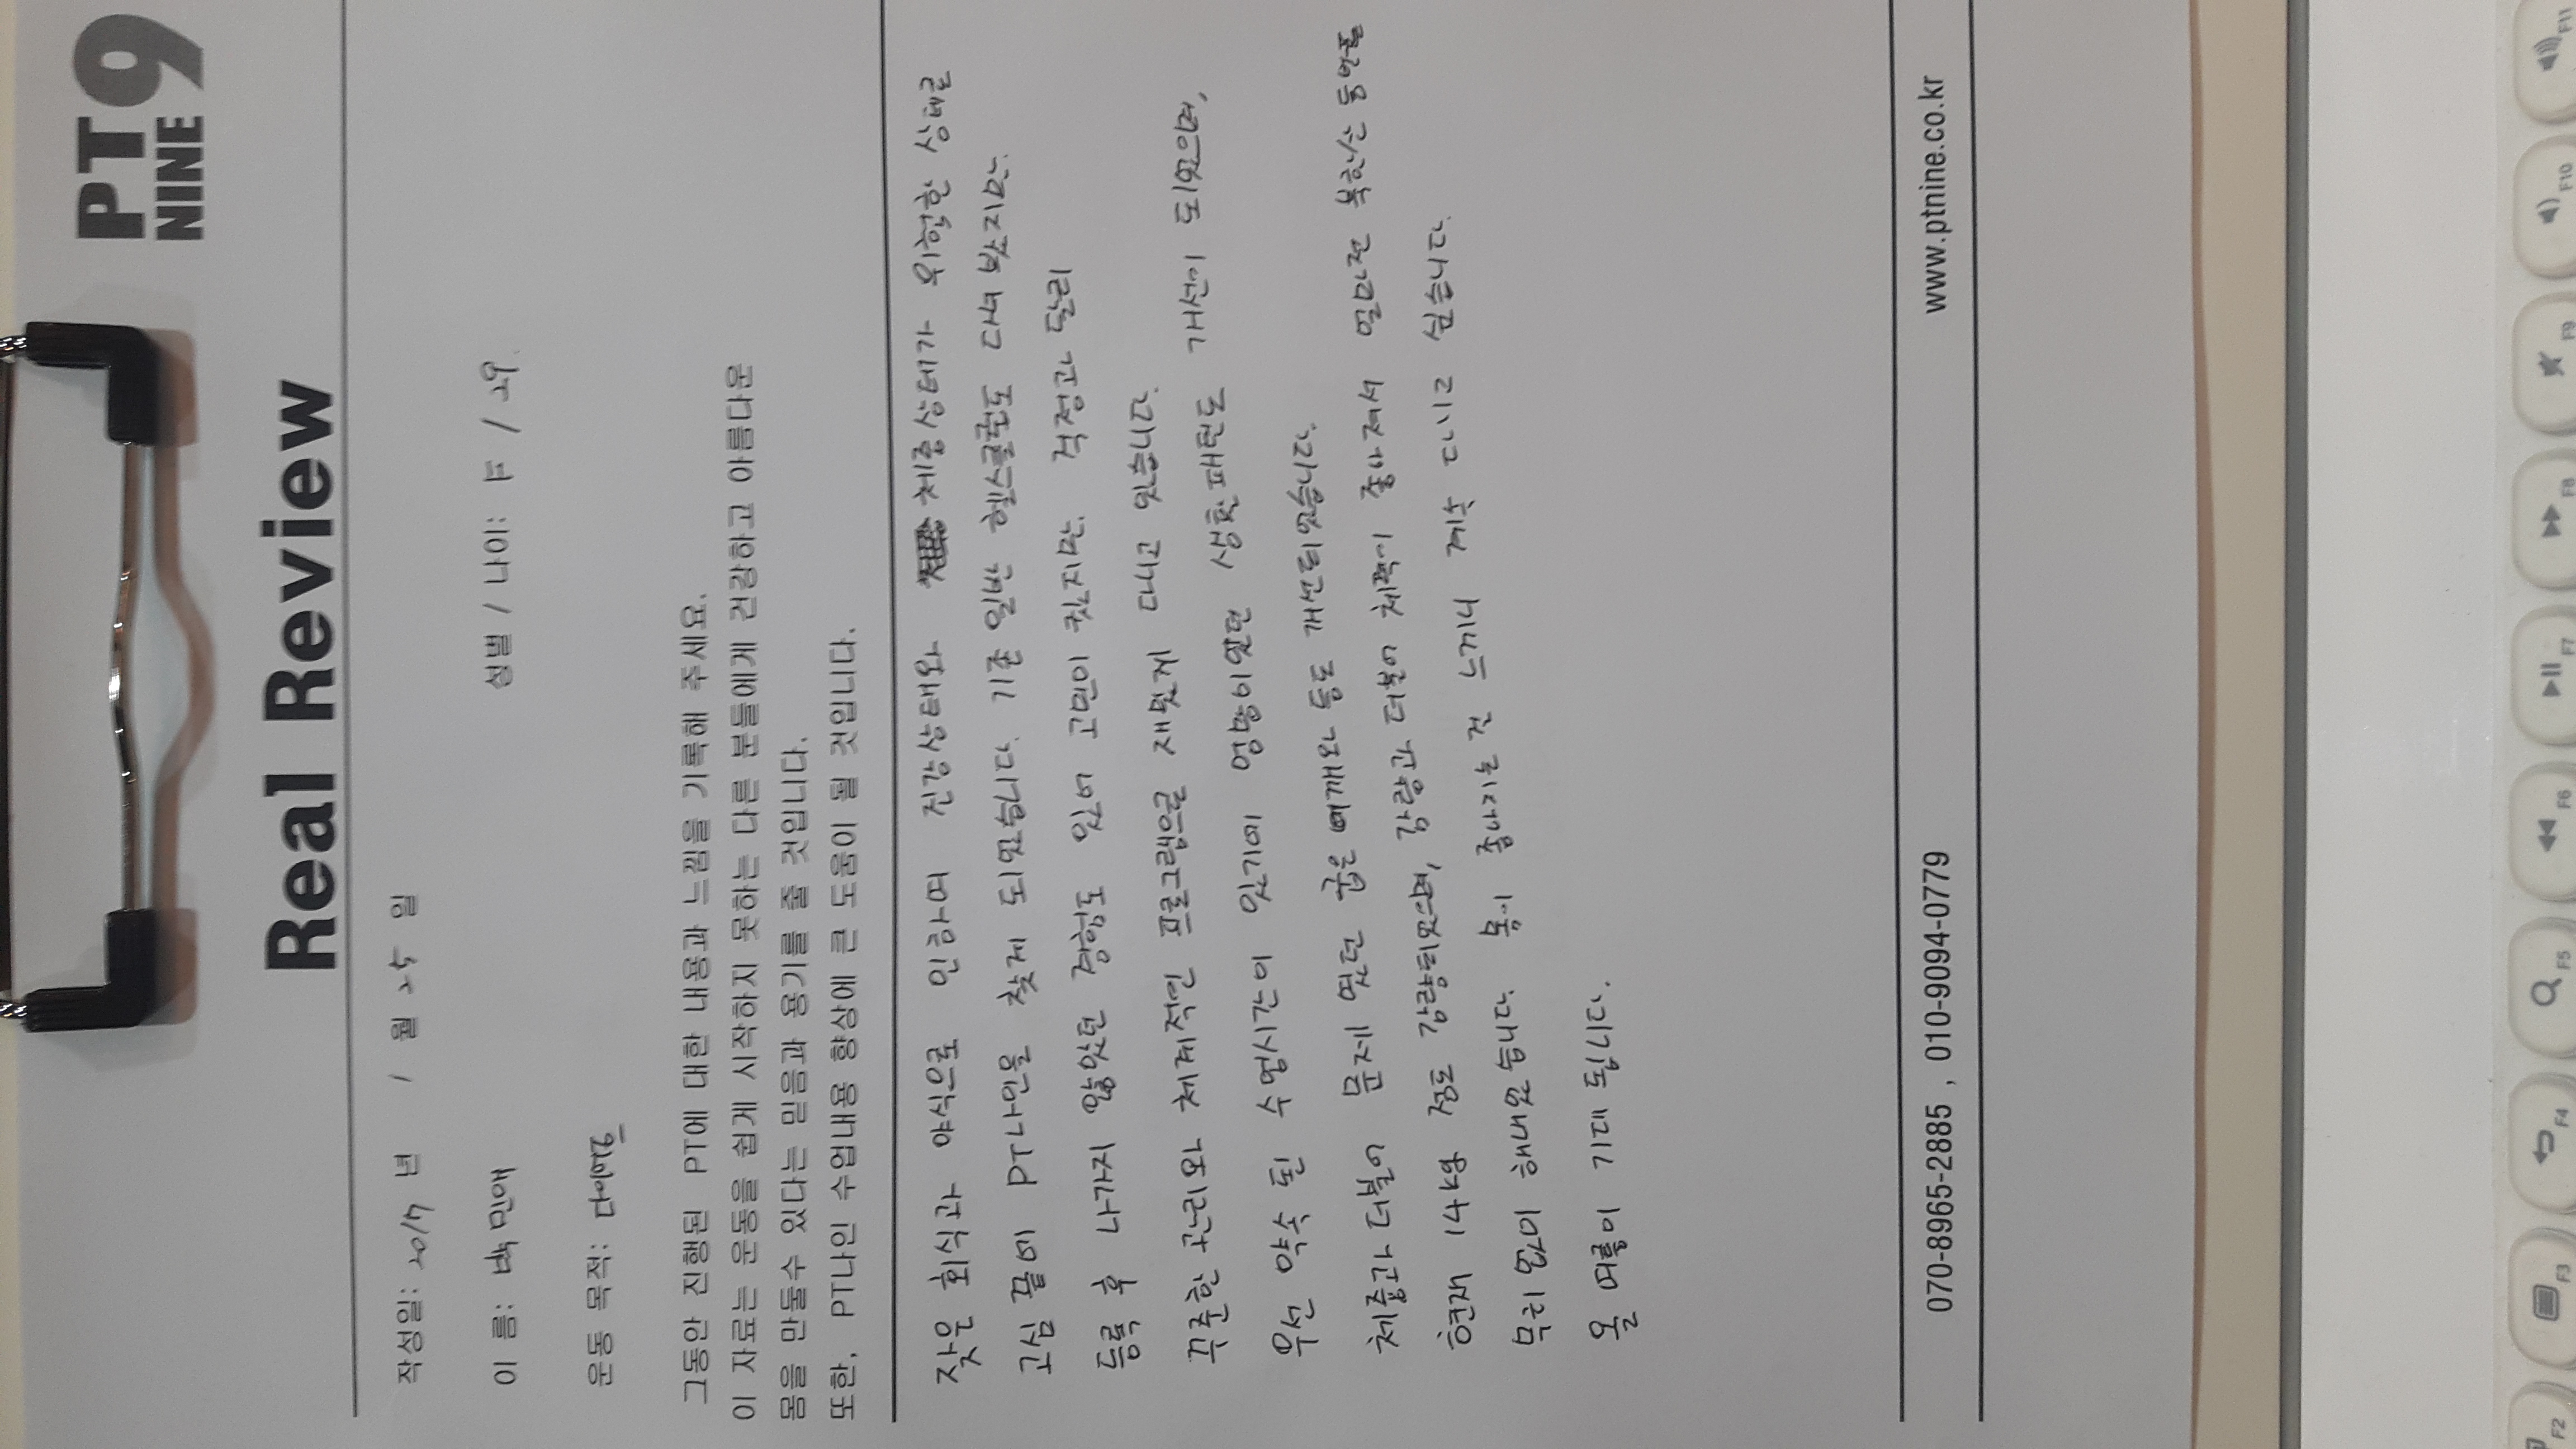 PT
NINE 9
Real Review
작성일: 2017 년 1 월 25 일
이 름: 박민애 성별 / 나이: F / 29.
운동 목적: 다이어트
그동안 진행된 PT에 대한 내용과 느낌을 기록해 주세요.
이 자료는 운동을 쉽게 시작하지 못하는 다른 분들에게 건강하고 아름다운
몸을 만들수 있다는 믿음과 용기를 줄 것입니다.
또한, PT나인 수업내용 향상에 큰 도움이 될 것입니다.
잦은 회식과 야식으로 인하여 건강상태와 체중상태가 심각한 상태로
고심 끝에 PT나인을 찾게 되었습니다. 기존 해오던 그대로
등록 후 나가지 않았던 경험도 있어 고민이 컸지만, 걱정과 달리
꾸준한 관리와 체계적인 프로그램은 재밌게 다니고 있습니다.
우선 약속 된 수업시간이 있기에 생활패턴도 개선이 되었으며,
체중과 더불어 몸문제 였던 굽은 어깨와 등도 개선되었습니다.
현재 14kg 정도 감량되었으며, 감량과 더불어 체력이 좋아져서 달리기
무리 없이 해내었습니다. 몸이 좋아지는 걸 느끼니 계속 다니고 싶습니다.
올 여름이 기대 됩니다.
070-8965-2885 , 010-9094-0779 www.ptnine.co.kr
F2
F3
F4
F5
F6
F7
F8
F9
F10
F11